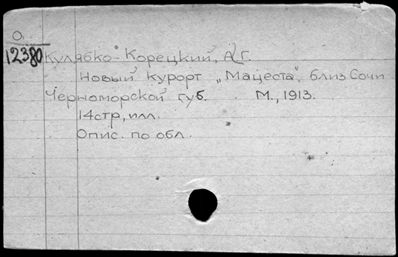 О.
12380 Кулябко-Корецкий, А.Г.
Новый курорт „Мацеста", близ Сочи
Черноморской губ. М., 1913.
14стр, илл.
Опис. по обл.